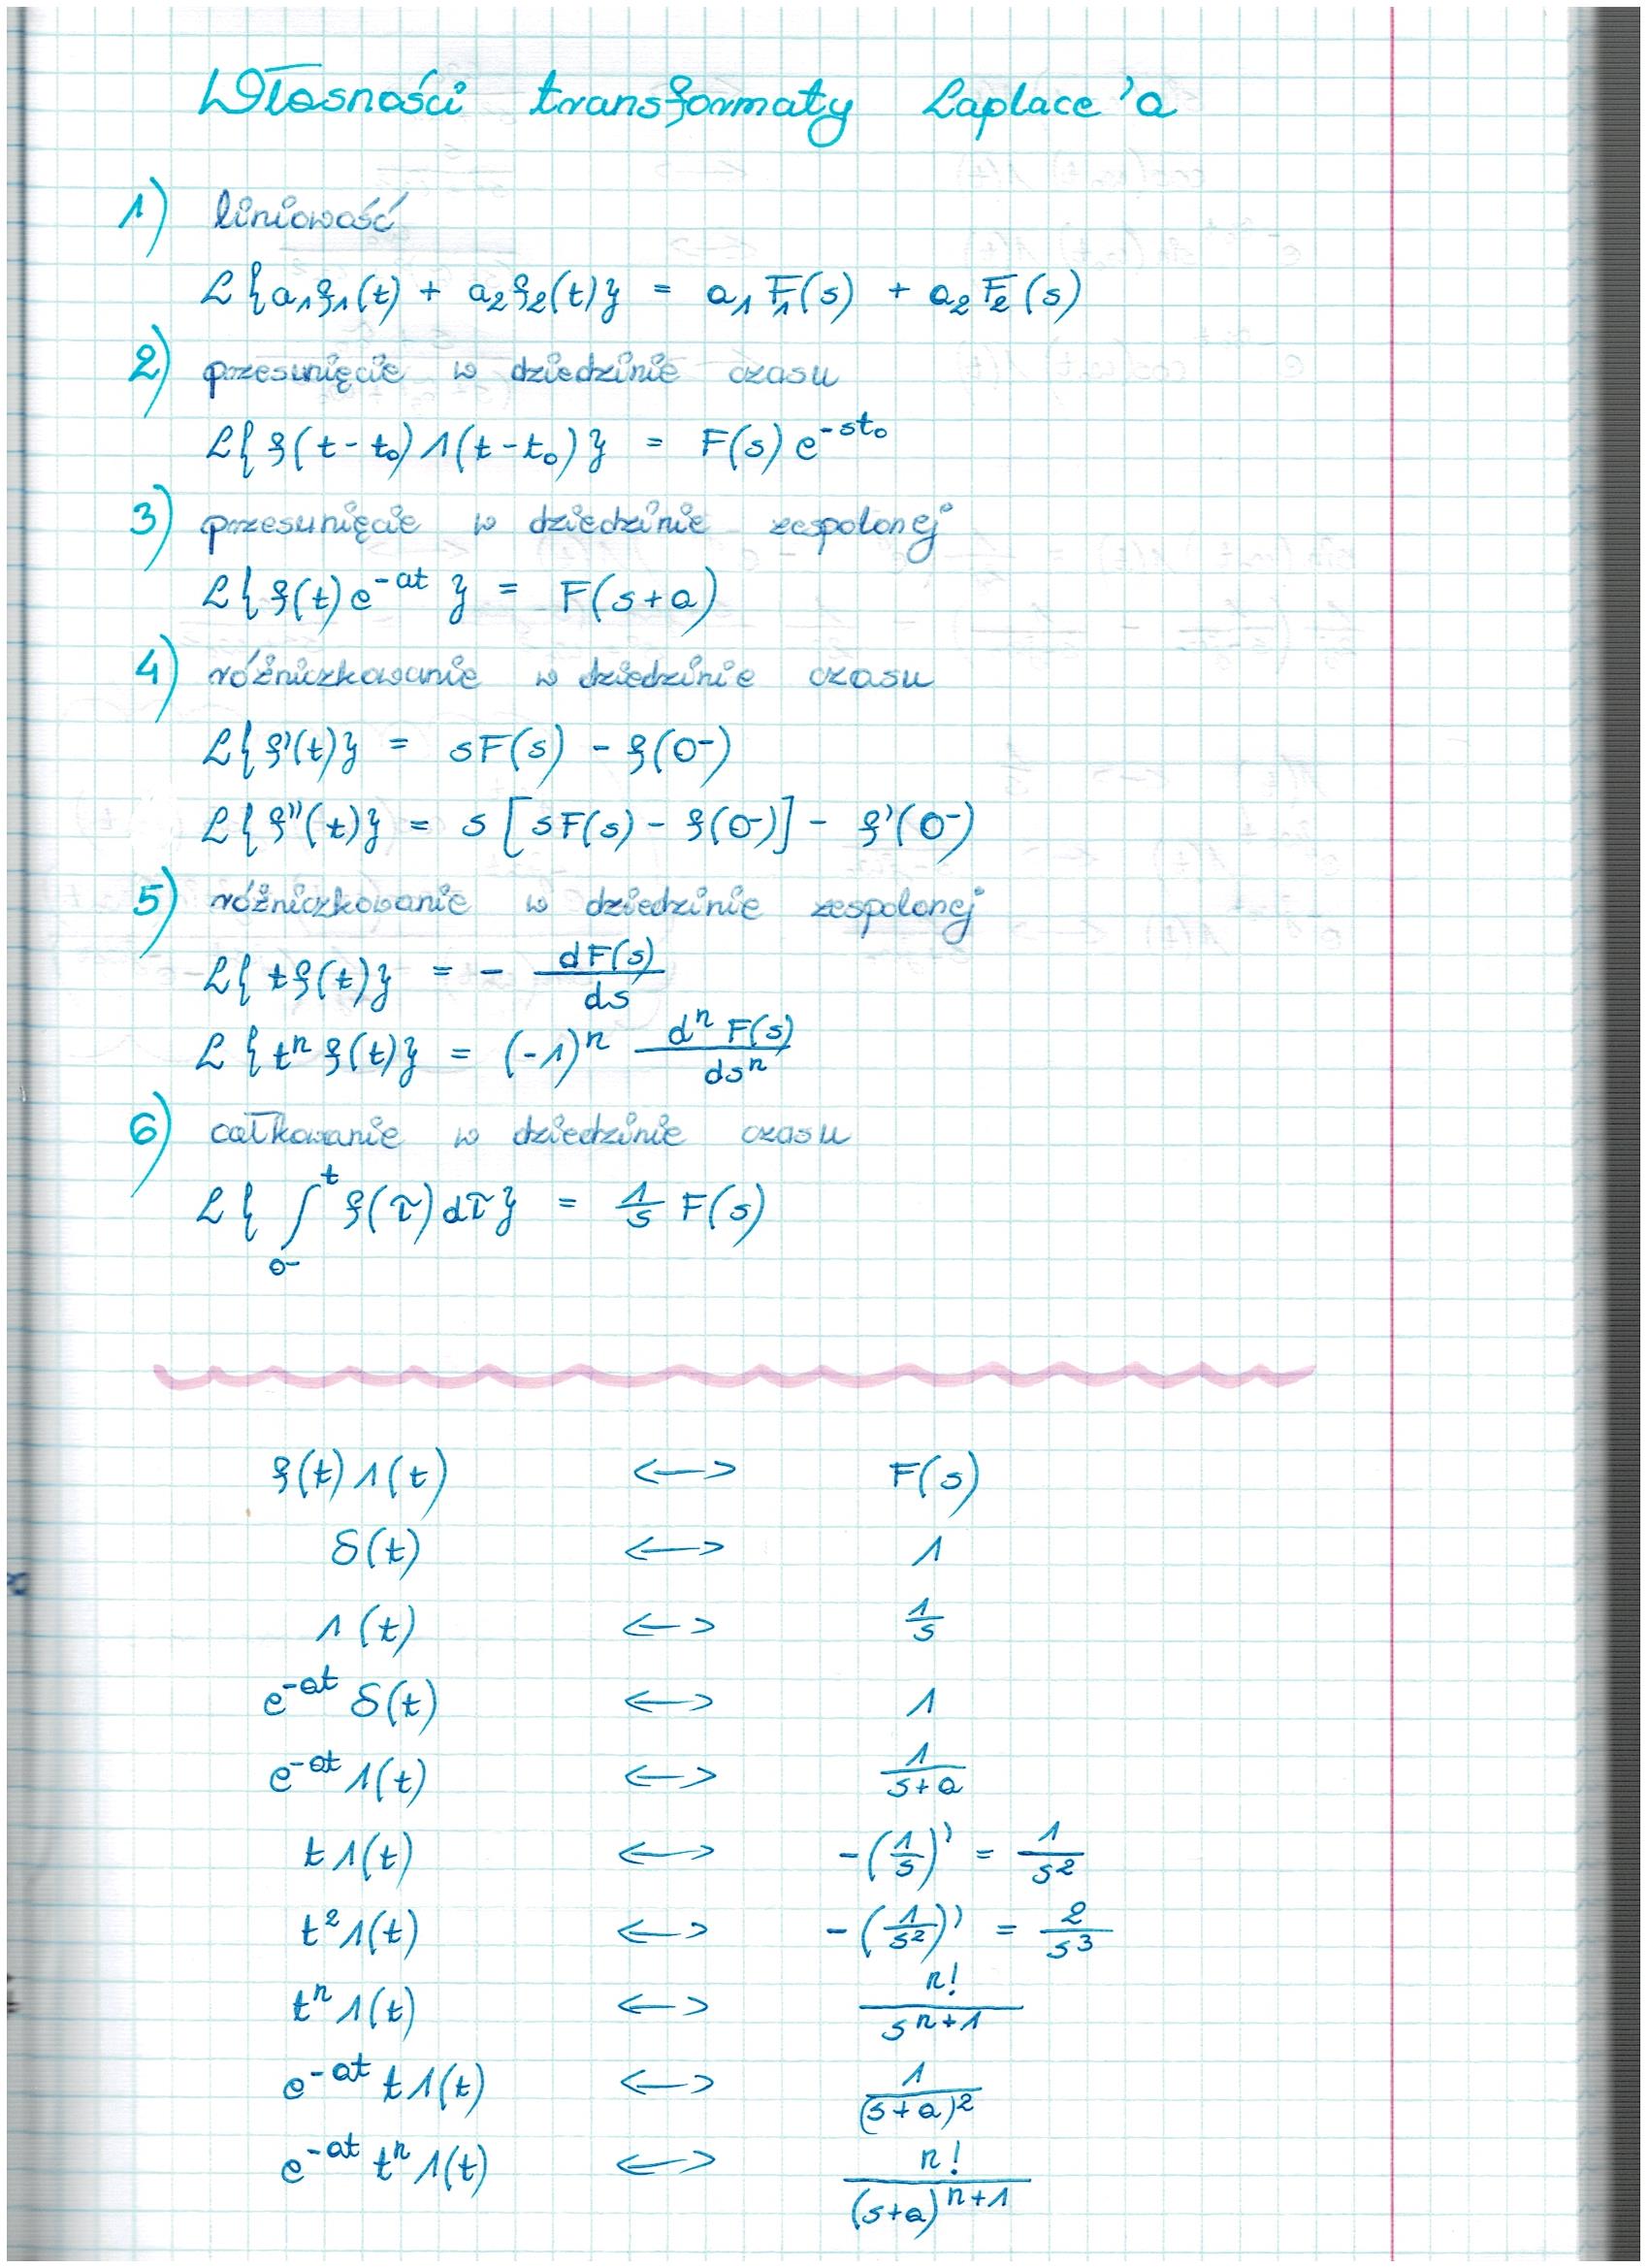 Własności transformaty Laplace'a
1) liniowość
ℒ{a₁f₁(t) + a₂f₂(t)} = a₁F₁(s) + a₂F₂(s)
2) przesunięcie w dziedzinie czasu
ℒ{f(t-t₀)1(t-t₀)} = F(s)e^(-st₀)
3) przesunięcie w dziedzinie zespolonej
ℒ{f(t)e^(-at)} = F(s+a)
4) różniczkowanie w dziedzinie czasu
ℒ{f'(t)} = sF(s) - f(0⁻)
ℒ{f''(t)} = s[sF(s) - f(0⁻)] - f'(0⁻)
5) różniczkowanie w dziedzinie zespolonej
ℒ{tf(t)} = - dF(s)/ds
ℒ{tⁿf(t)} = (-1)ⁿ dⁿF(s)/dsⁿ
6) całkowanie w dziedzinie czasu
ℒ{∫₀₋ᵗ f(τ)dτ} = 1/s F(s)
f(t)1(t) <-> F(s)
δ(t) <-> 1
1(t) <-> 1/s
e^(-at) δ(t) <-> 1
e^(-at) 1(t) <-> 1/(s+a)
t1(t) <-> -(1/s)' = 1/s²
t²1(t) <-> -(1/s²)' = 2/s³
tⁿ1(t) <-> n!/s^(n+1)
e^(-at) t1(t) <-> 1/(s+a)²
e^(-at) tⁿ1(t) <-> n!/(s+a)^(n+1)